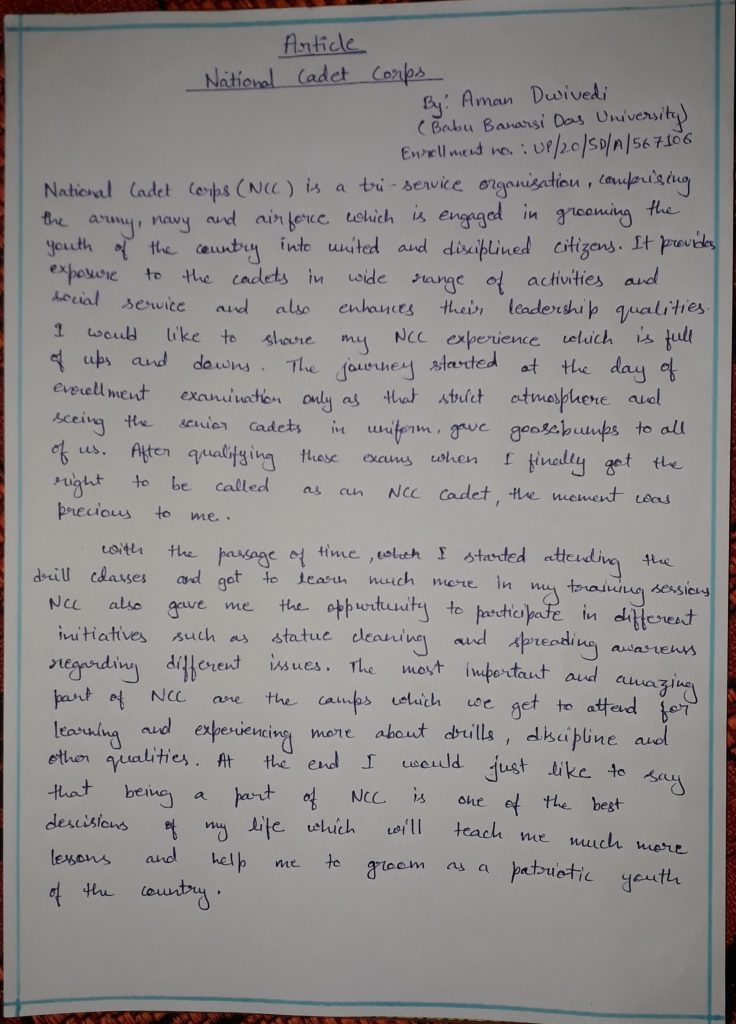 Article
National Cadet Corps
By: Aman Dwivedi
(Babu Banarsi Das University)
Enrollment no. : UP/20/SD/A/567106
National Cadet Corps (NCC) is a tri-service organisation, comprising
the army, navy and airforce which is engaged in grooming the
youth of the country into united and disciplined citizens. It provides
exposure to the cadets in wide range of activities and
social service and also enhances their leadership qualities.
I would like to share my NCC experience which is full
of ups and downs. The journey started at the day of
enrollment examination only as that strict atmosphere and
seeing the senior cadets in uniform, gave goosebumps to all
of us. After qualifying those exams when I finally got the
right to be called as an NCC cadet, the moment was
precious to me.
with the passage of time, when I started attending the
drill classes and got to learn much more in my training sessions
NCC also gave me the oppurtunity to participate in different
initiatives such as statue cleaning and spreading awareness
regarding different issues. The most important and amazing
part of NCC are the camps which we get to attend for
learning and experiencing more about drills, discipline and
other qualities. At the end I would just like to say
that being a part of NCC is one of the best
descisions of my life which will teach me much more
lessons and help me to groom as a patriotic youth
of the country.